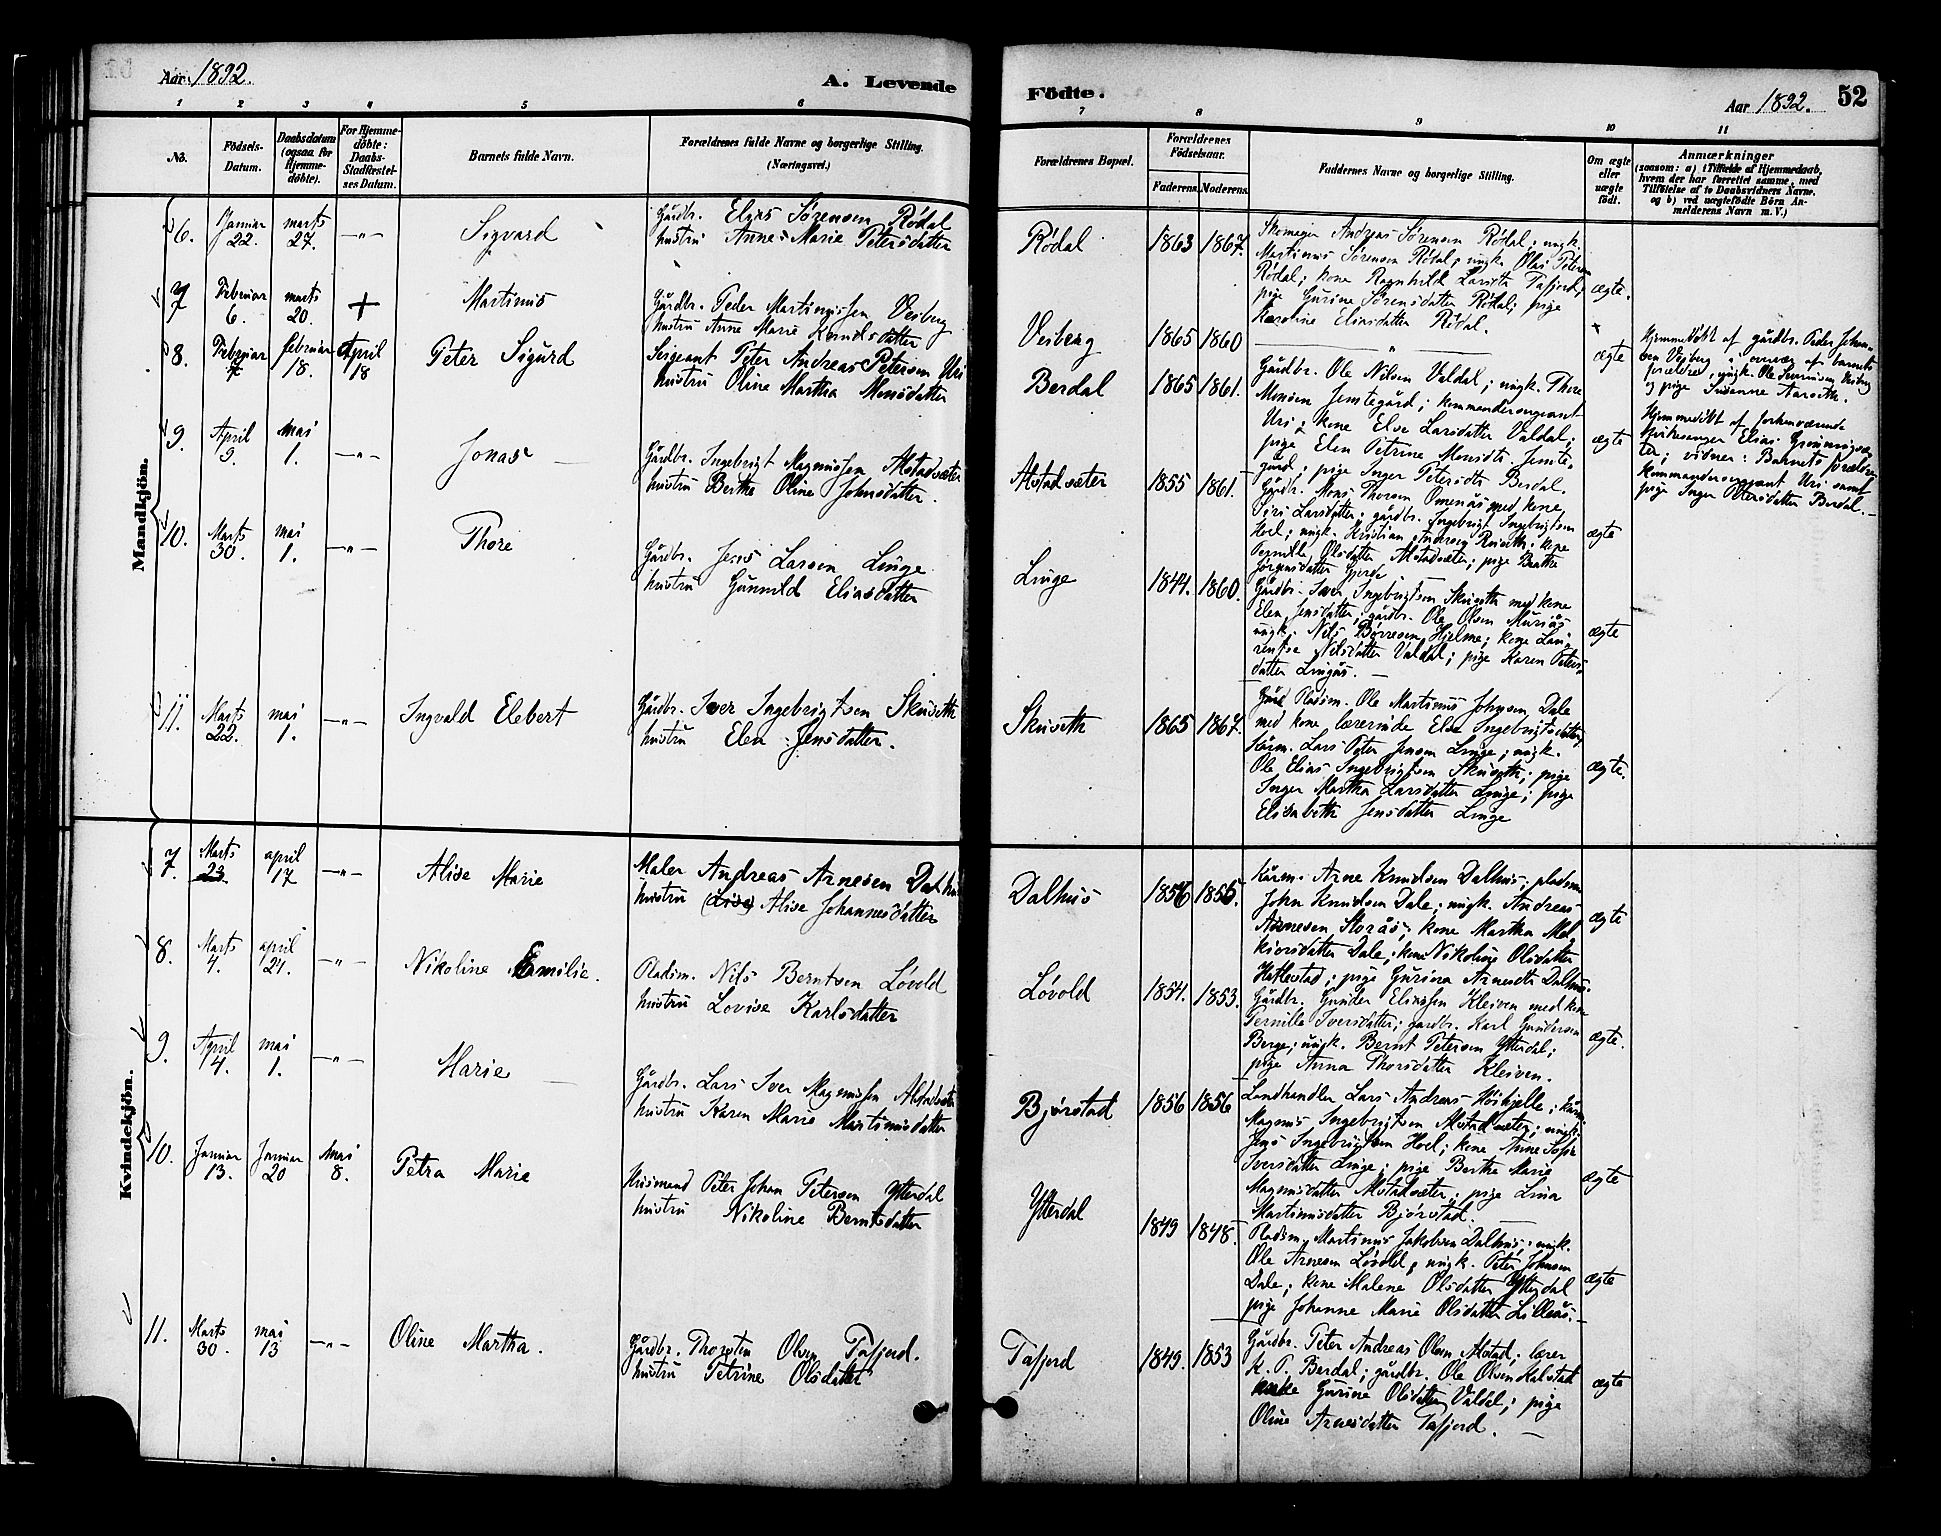 Aar 1892.
A. Levende
Födte.
Aar 1892.
52
1 2 3 4 5 6 7 8 9 10 11
No.
Födsels-Datum.
Daabsdatum (ogsaa for Hjemme-döbte).
For Hjemme-döbte: Daabs-Stadfæstel-ses Datum.
Barnets fulde Navn.
Forældrenes fulde Navne og borgerlige Stilling. (Næringsvei.)
Forældrenes Bopæl.
Forældrenes Födselsaar.
Faderens. Moderens.
Faddernes Navne og borgerlige Stilling.
Om ægte eller uægte födt.
Anmærkninger
(saasom: a) i Tilfælde af Hjemmedaab, hvem der har forrettet samme, med Tilföielse af to Daabsvidners Navne, og b) ved uægtefödte Börn An-melderens Navn m. V.)
Mandkjön.
6. Januar 22. marts 27. -"- Sigvard
Gårdbr. Elias Sørensen Rødal
hustru Anne Marie Petersdatter
Rødal 1863 1867.
Skomager Andreas Sørensen Rødal; ungk.
Martinus Sørensen Rødal; ungk. Olai Petersen
Rødal; kone Ragnhild Larsdtr Tafjord;
pige Gurine Sørensdatter Rødal; pige
Karoline Eliasdatter Rødal.
ægte.
7 Februar 6. marts 20. + Martinus
Gårdbr. Peder Martinussen Veiberg
hustru Anne Marie Knudsdatter
Veiberg 1865 1860
"
+
ægte
Hjemmedöbt af gårdbr. Peder Johan-
sen Vejberg i overvær af barnets
forældre, ungk. Ole Severinsen Veiberg
og pige Susanne Aarseth.
8. Februar 7 februar 18. April 18 Peter Sigurd
Sergeant Peter Andreas Petersen Uri
hustru Oline Martha Monsdatter
Berdal 1865 1861.
Gårdbr. Ole Nilsen Valdal; ungk. Thore
Monsen Jemtegård; kommandersergeant
Uri; kone Else Larsdatter Valdal;
pige Elen Petrine Monsdtr. Jemte-
gård; pige Inger Petersdtr Berdal.
ægte
Hjemmedöbt af forhenværende
kirkesanger Elias Grønningsæ-
ter; vidner: Barnets forældre
kommandersergeant Uri samt
pige Inger Petersdatter Berdal.
9. April 9. mai 1. -"- Jonas
Gårdbr. Ingebrigt Magnussen Alstadsæter
hustru Berthe Oline Johnsdatter.
Alstadsæter 1855 1861.
Gårdbr. Mons Thorsen Omenås med kone
Siri Larsdatter; gårdbr. Ingebrigt Ingebrigtsen
Hoel; ungk. Kristian Andreas Ruseth; kone
Pernille Olsdatter Alstadsæter; pige Beathe
Jörgensdatter Gjerde
ægte
10. Marts 30. mai 1. -"- Thore
Gårdbr. Jens Larsen Linge
hustru Gunnild Eliasdatter
Linge 1844. 1860.
Gårdbr. Iver Ingebrigtsen Skuseth med kone
Elen Jensdatter; gårdbr. Ole Olsen Muriås
ungk. Nils Børresen Hjelme; kone Lau-
rentse Nilsdatter Valdal; pige Karen Peters-
datter Lingås.
ægte
11. Marts 22. mai 1. -"- Ingvald Elebert
Gårdbr. Iver Ingebrigtsen Skuseth
hustru Elen Jensdatter.
Skuseth 1865 1867.
Pladsm. Ole Martinus Johnsen Dale
med kone lærerinde Else Ingebrigtsdatter;
Kårm. Lars Peter Jensen Linge; ungk.
Ole Elias Ingebrigtsen Skuseth; pige
Inger Martha Larsdatter Linge; pige
Elisabeth Jensdatter Linge
ægte.
Kvindekjön.
7. Marts 23 april 17 -"- Alise Marie
Maler Andreas Arnesen Dalhus
hustru (Lise) Alise Johannesdatter
Dalhus 1856 1855.
Kårm. Arne Knudsen Dalhus; pladsm.
John Knudsen Dale; ungk. Andreas
Arnesen Storås; kone Martha Mel-
kiorsdatter Dale; kone Nikoline Olsdatter
Hatlestad; pige Gurina Arnesdtr Dalhus
ægte
8. Marts 4. april 24. -"- Nikoline Emilie.
Pladsm. Nils Berntsen Løvold
hustru Lovise Karlsdatter
Løvold 1854. 1853.
Gårdbr. Gunder Eliassen Kleiven med kone
Pernille Iversdatter; gårdbr. Karl Gundersen
Berge; ungk. Bernt Petersen Ytterdal;
pige Anna Thorsdatter Kleiven.
ægte.
9. April 14. mai 1. -"- Marie
Gårdbr. Lars Iver Magnussen Alstadsæter
hustru Karen Marie Martinusdatter
Bjørstad 1856 1856
Landhandler Lars Andreas Höihjelle; kårm.
Magnus Ingebrigtsen Alstadsæter; ungk.
Jens Ingebrigtsen Hoel; kone Anne Sofie
Iversdatter Linge; pige Berthe Marie
Magnusdatter Alstadsæter; pige Lina
Martinusdatter Bjørstad.
ægte
10. Januar 13. Januar 20 Mai 8. Petra Marie
Husmand Peter Johan Petersen Ytterdal
hustru Nikoline Berntsdatter
Ytterdal 1849 1848.
Pladsm. Martinus Jakobsen Dalhus; ungk.
Ole Arnesen Løvold; ungk. Peter Johnsen
Dale; kone Malene Olsdatter Ytterdal
pige Johanne Marie Olsdatter Lilleås.
ægte
11. Marts 30. mai 13 -"- Oline Martha.
Gårdbr. Thorstein Olsen Tafjord.
hustru Petrine Olsdatter
Tafjord 1849. 1853
Gårdbr. Peter Andreas Olsen Alstad; lærer
K. P. Berdal; gårdbr. Ole Olsen Kalstad
enke Gurine Olsdatter Valdal; pige
Oline Arnesdatter Tafjord.
ægte